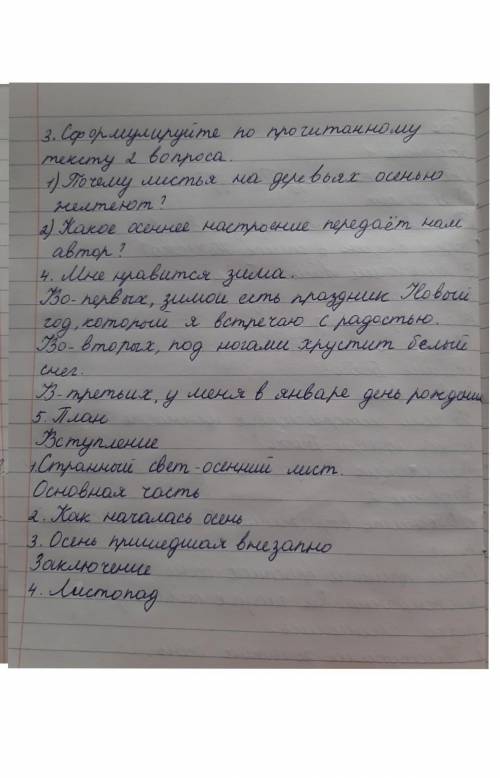 3. Сформулируйте по прочитанному
тексту 2 вопроса.
1) Почему листья на деревьях осенью
желтеют?
2) Какое осеннее настроение передаёт нам
автор?
4. Мне нравится зима.
Во-первых, зимой есть праздник Новый
год, который я встречаю с радостью.
Во-вторых, под ногами хрустит белый
снег.
В-третьих, у меня в январе день рождения
5. План
Вступление
1. Странный свет-осенний лист.
Основная часть
2. Как началась осень
3. Осень пришедшая внезапно
Заключение
4. Листопад